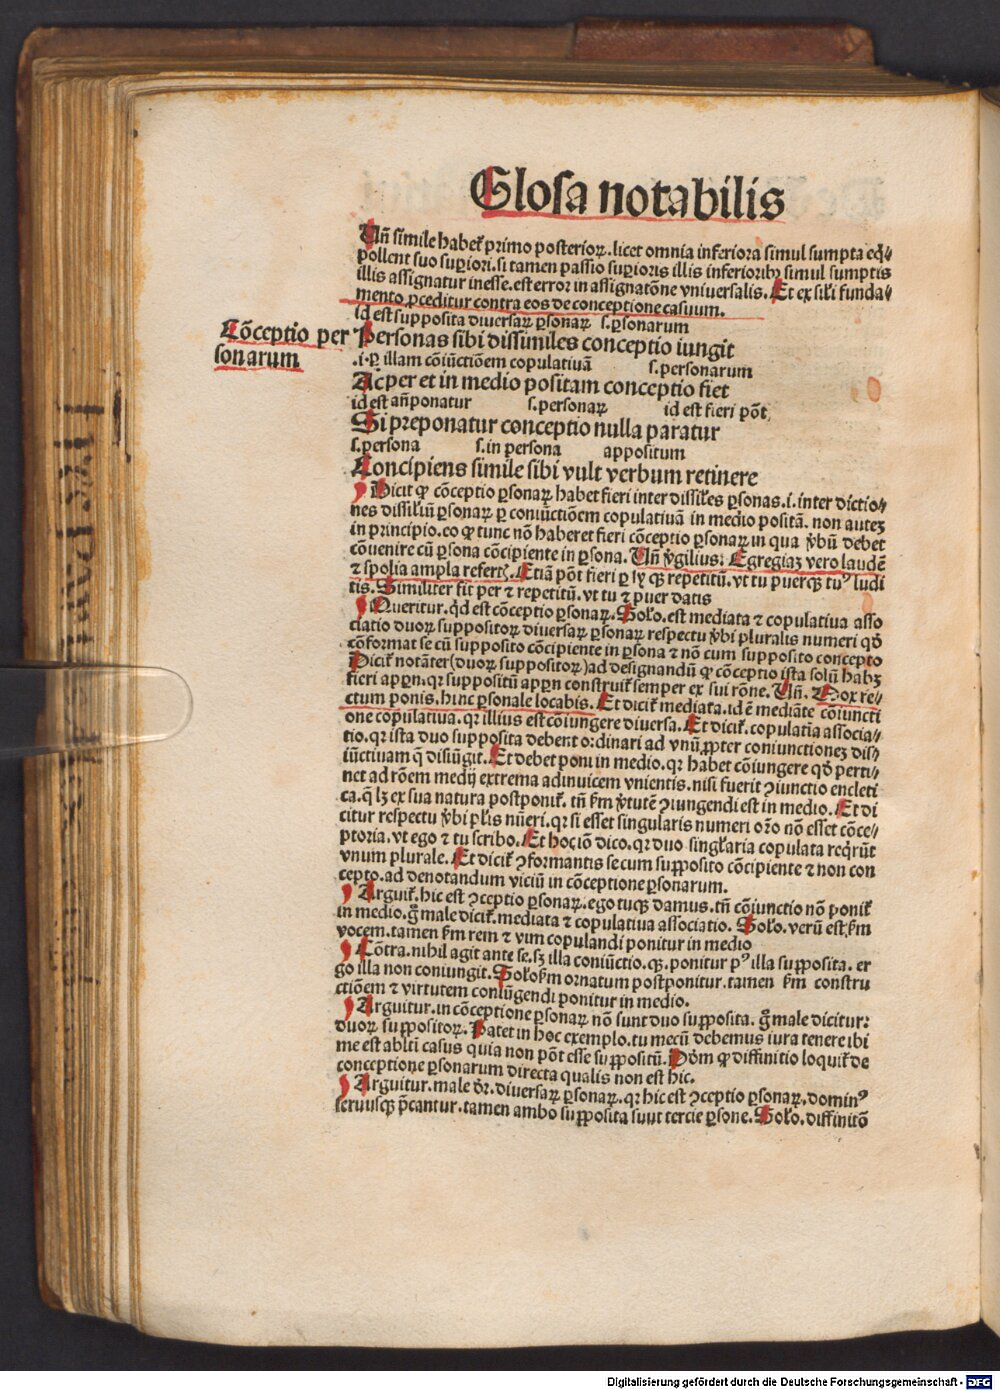 Glosa notabilis
Uñ simile habet̃ primo posterioꝝ. licet omnia inferiora simul sumpta eq̃⸗
pollent suo suꝑiori. si tamen passio suꝑioris illis inferioribꝫ simul sumptis
illis assignatur inesse. est error in assignatõne vniuersalis. Et ex sil̃i funda⸗
mento ꝓceditur contra eos de conceptione casuum.
id est supposita diuersaꝝ ꝑsonaꝝ s. ꝑsonarum
Cõceptio per
sonarum
Personas sibi dissimiles conceptio iungit
.i. ꝑ illam cõiũctiõem copulatiuã s. personarum
Ac per et in medio positam conceptio fiet
id est añponatur s. personaꝝ id est fieri põt
Si preponatur conceptio nulla paratur
s. persona s. in persona appositum
Concipiens simile sibi vult verbum retinere
Dicit ꝙ cõceptio ꝑsonaꝝ habet fieri inter dissil̃es ꝑsonas. i. inter dictio⸗
nes dissiliũ ꝑsonaꝝ ꝑ coniũctiõem copulatiuã in medio positã. non autẽ
in principio. eo ꝙ tunc nõ haberet fieri cõceptio ꝑsonaꝝ in qua v̾bũ debet
cõuenire cũ ꝑsona cõcipiente in ꝑsona. Uñ v̾gilius: Egregiaꝫ vero laudẽ
⁊ spolia ampla refertꝭ. Etiã põt fieri ꝑ ly qꝫ repetitũ. vt tu puerqꝫ tuꝰ ludi
tis. Similiter fit per ⁊ repetitũ. vt tu ⁊ puer datis
Queritur. qͥd est cõceptio ꝑsonaꝝ. Sol̃o. est mediata ⁊ copulatiua asso
ciatio duoꝝ suppositoꝝ diuersaꝝ ꝑsonaꝝ respectu v̾bi pluralis numeri qd̾
cõformat se cũ supposito cõcipiente in ꝑsona ⁊ nõ cum supposito concepto
Dicit̃ notãter (duoꝝ suppositoꝝ) ad designandũ ꝙ cõceptio ista solũ habꝫ
fieri apꝑñ. qꝛ suppositũ apꝑñ construit̃ semper ex sui rõne. Uñ. Uox re⸗
ctum ponis. hinc ꝑsonale locabis. Et dicit̃ mediata. id ẽ mediãte cõiuncti
one copulatiua. qꝛ illius est cõiungere diuersa. Et dicit̃. copulatĩa associa⸗
tio. qꝛ ista duo supposita debent ordinari ad vnũ ꝓpter coniunctionẽ dis⸗
iũctiuam q̃ disiũgit. Et debet poni in medio. qꝛ habet cõiungere qd̾ perti⸗
net ad rõem medij extrema adinuicem vnientis. nisi fuerit ꝯiunctio encleti
ca. q̃ lꝫ ex sua natura postponit̃. tñ ẜm v̾tutẽ ꝯiungendi est in medio. Et di
citur respectu v̾bi pl̃is nũeri. qꝛ si esset singularis numeri or̃o nõ esset cõce⸗
ptoria. vt ego ⁊ tu scribo. Et hoc iõ dico. qꝛ duo singl̃aria copulata reqͥrũt
vnum plurale. Et dicit̃ ꝯformantis se cum supposito cõcipiente ⁊ non con
cepto. ad denotandum viciũ in cõceptione ꝑsonarum.
Arguit̃. hic est ꝯceptio ꝑsonaꝝ. ego tuqꝫ damus. tñ cõiunctio nõ ponit̃
in medio. gͦ male dicit̃. mediata ⁊ copulatiua associatio. Sol̃o. verũ est. ẜm
vocem. tamen ẜm rem ⁊ vim copulandi ponitur in medio
Cõtra. nihil agit ante se. sꝫ illa coniũctio. qꝫ. ponitur pꝰ illa supposita. er
go illa non coniungit. Sol̃o ẜm ornatum postponitur. tamen ẜm constru
ctiõem ⁊ virtutem coniũgendi ponitur in medio.
Arguitur. in cõceptione ꝑsonaꝝ nõ sunt duo supposita. gͦ male dicitur:
duoꝝ suppositoꝝ. Patet in hoc exemplo. tu mecũ debemus iura tenere ibi
me est ablti casus quia non põt esse suppositũ. Dõm ꝙ diffinitio loquit̃ de
conceptione ꝑsonarum directa qualis non est hic.
Arguitur. male d̾r. diuersaꝝ ꝑsonaꝝ. qꝛ hic est ꝯceptio ꝑsonaꝝ. dominꝰ
seruusqꝫ p̃cantur. tamen ambo supposita sunt tercie ꝑsone. Sol̃o. diffinitõ
Digitalisierung gefördert durch die Deutsche Forschungsgemeinschaft - DFG